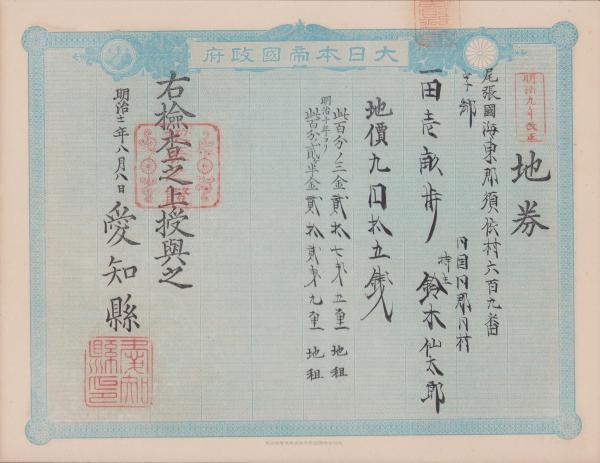 大日本帝國政府
明治九年改正
地券
尾張國海東郡須依村六百九番
字郷
一田壱畝歩
同国同郡同村
持主 鈴木仙太郎
地價九円拾五銭
此百分ノ三金貳拾七銭五厘 地租
明治十年ヨリ
此百分貳半金貳拾貳銭九厘 地租
右檢査之上授與之
明治十二年八月八日
愛知縣
愛知縣印